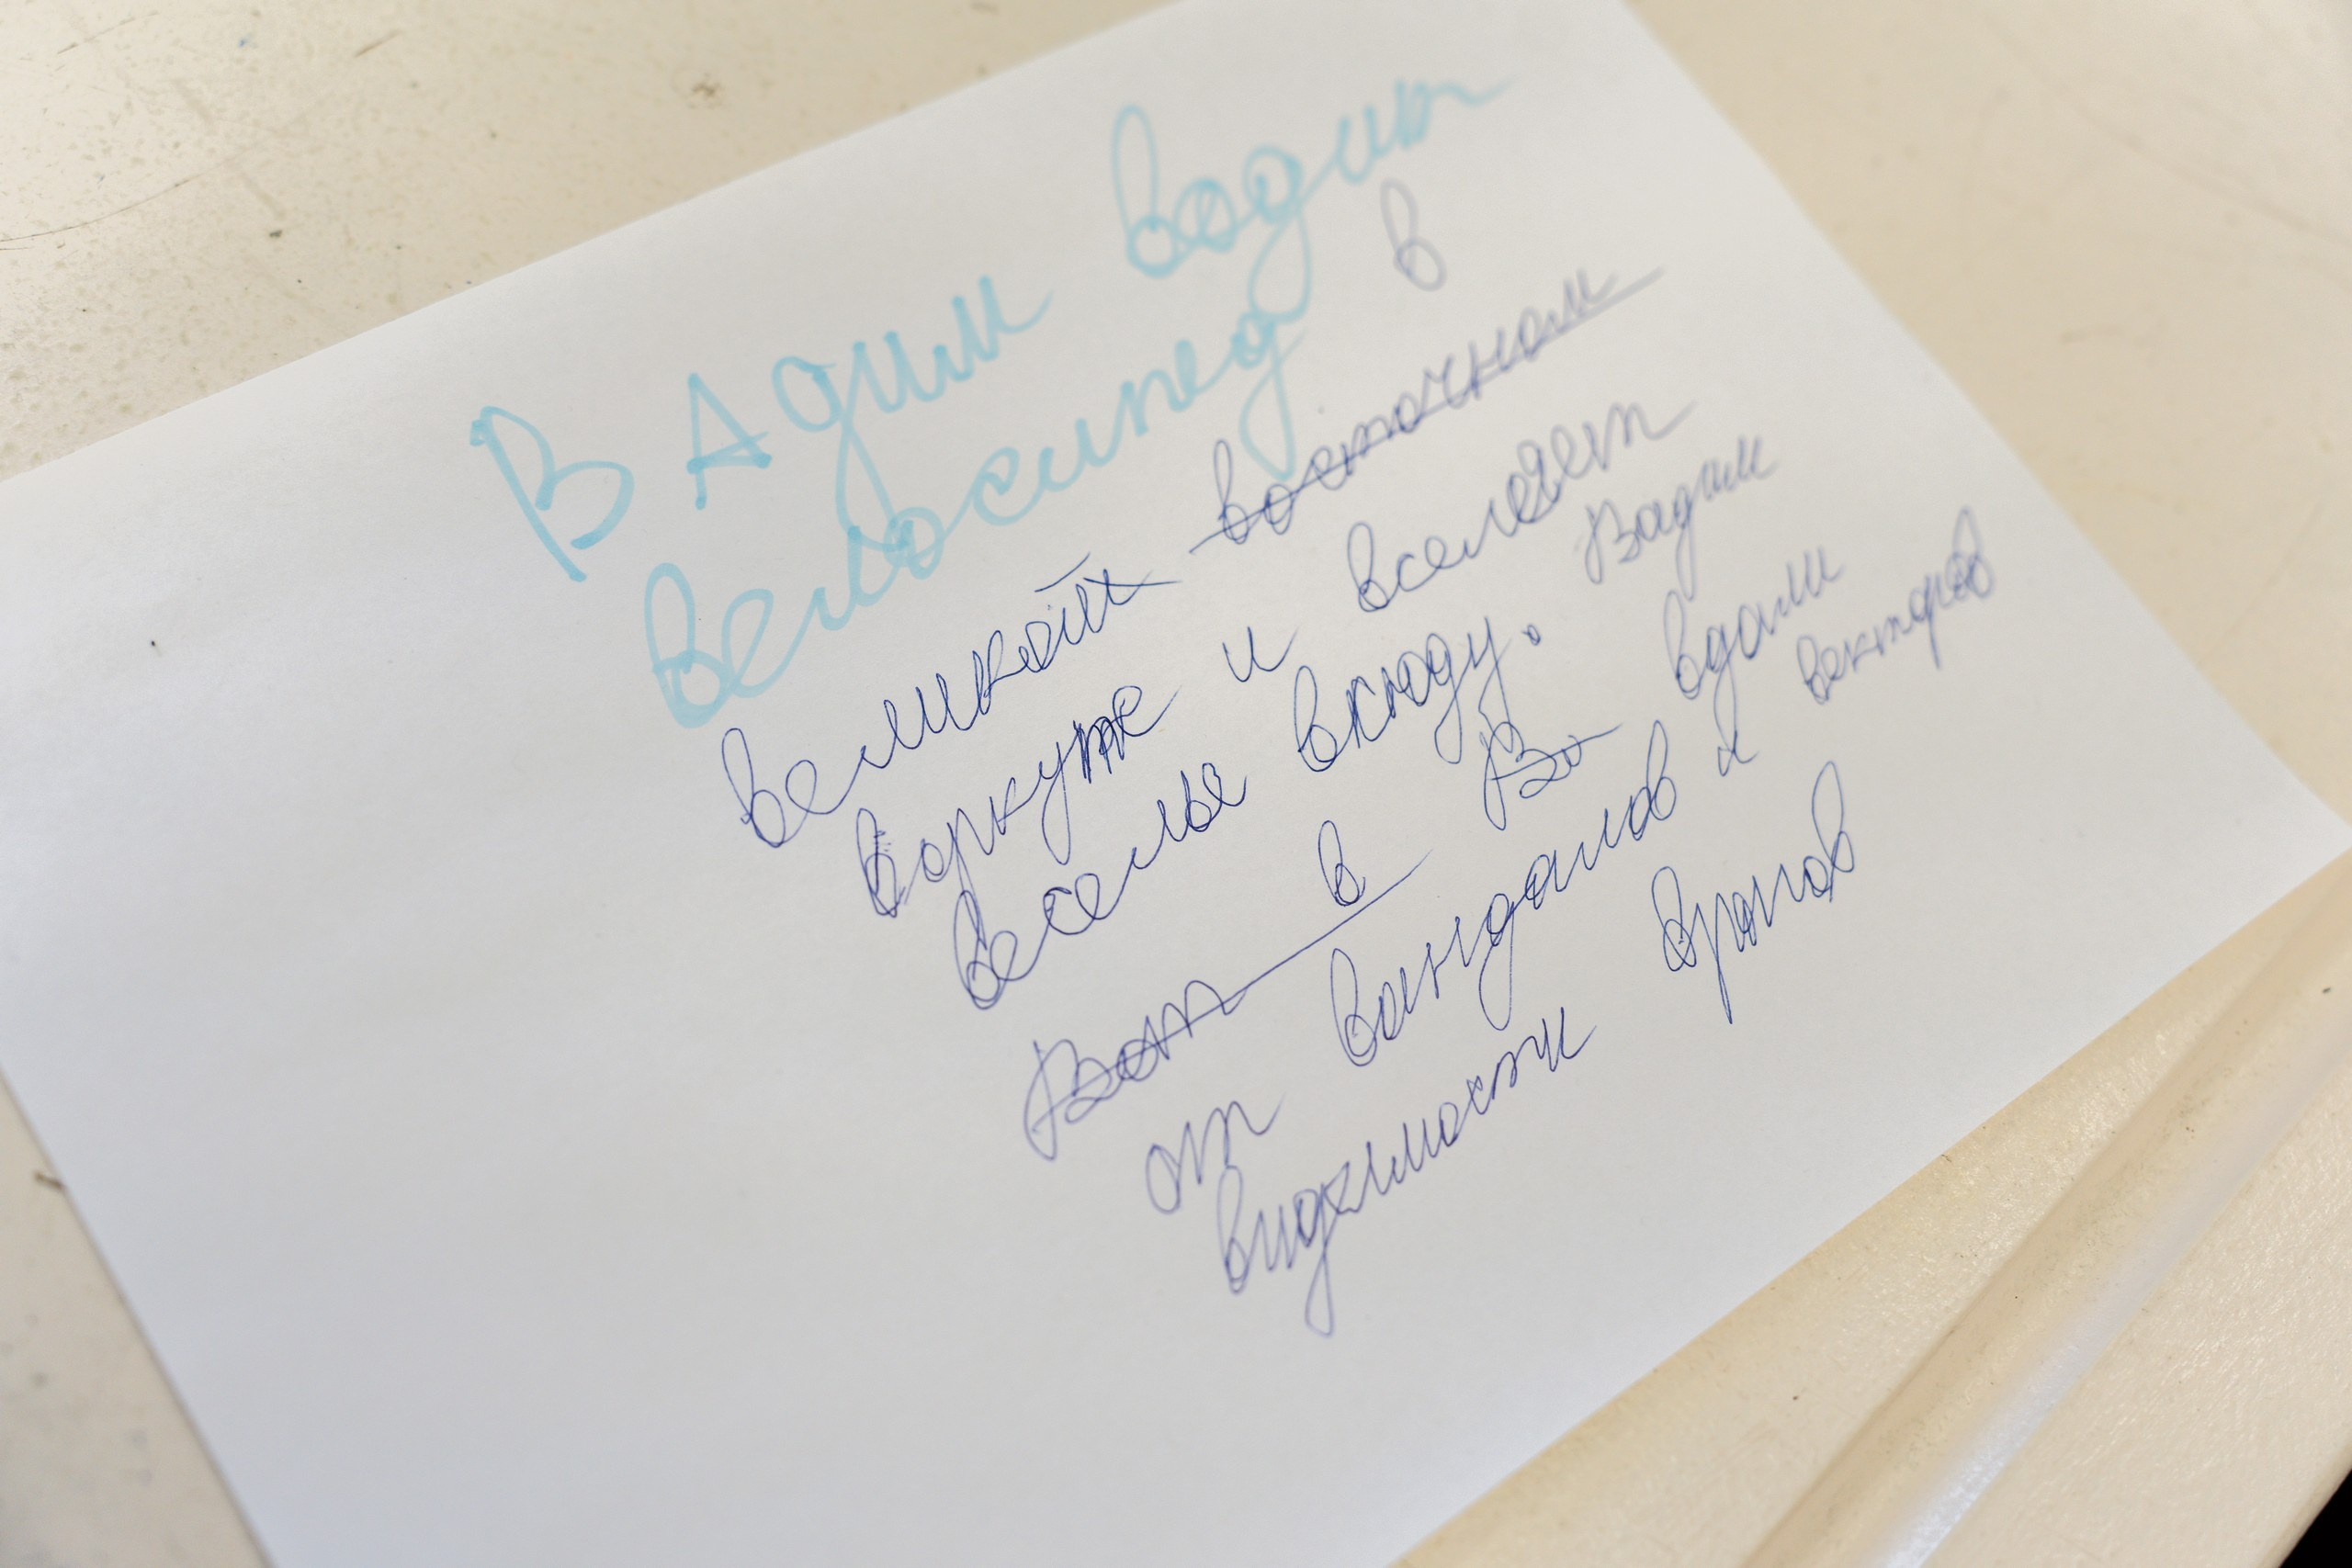 Вадим водит
велосипед в
великой восточном
Воркуте и вселяет
веселье всюду. Вадим
Вот в Во вдали
от вандалов и векторов
видимости врагов